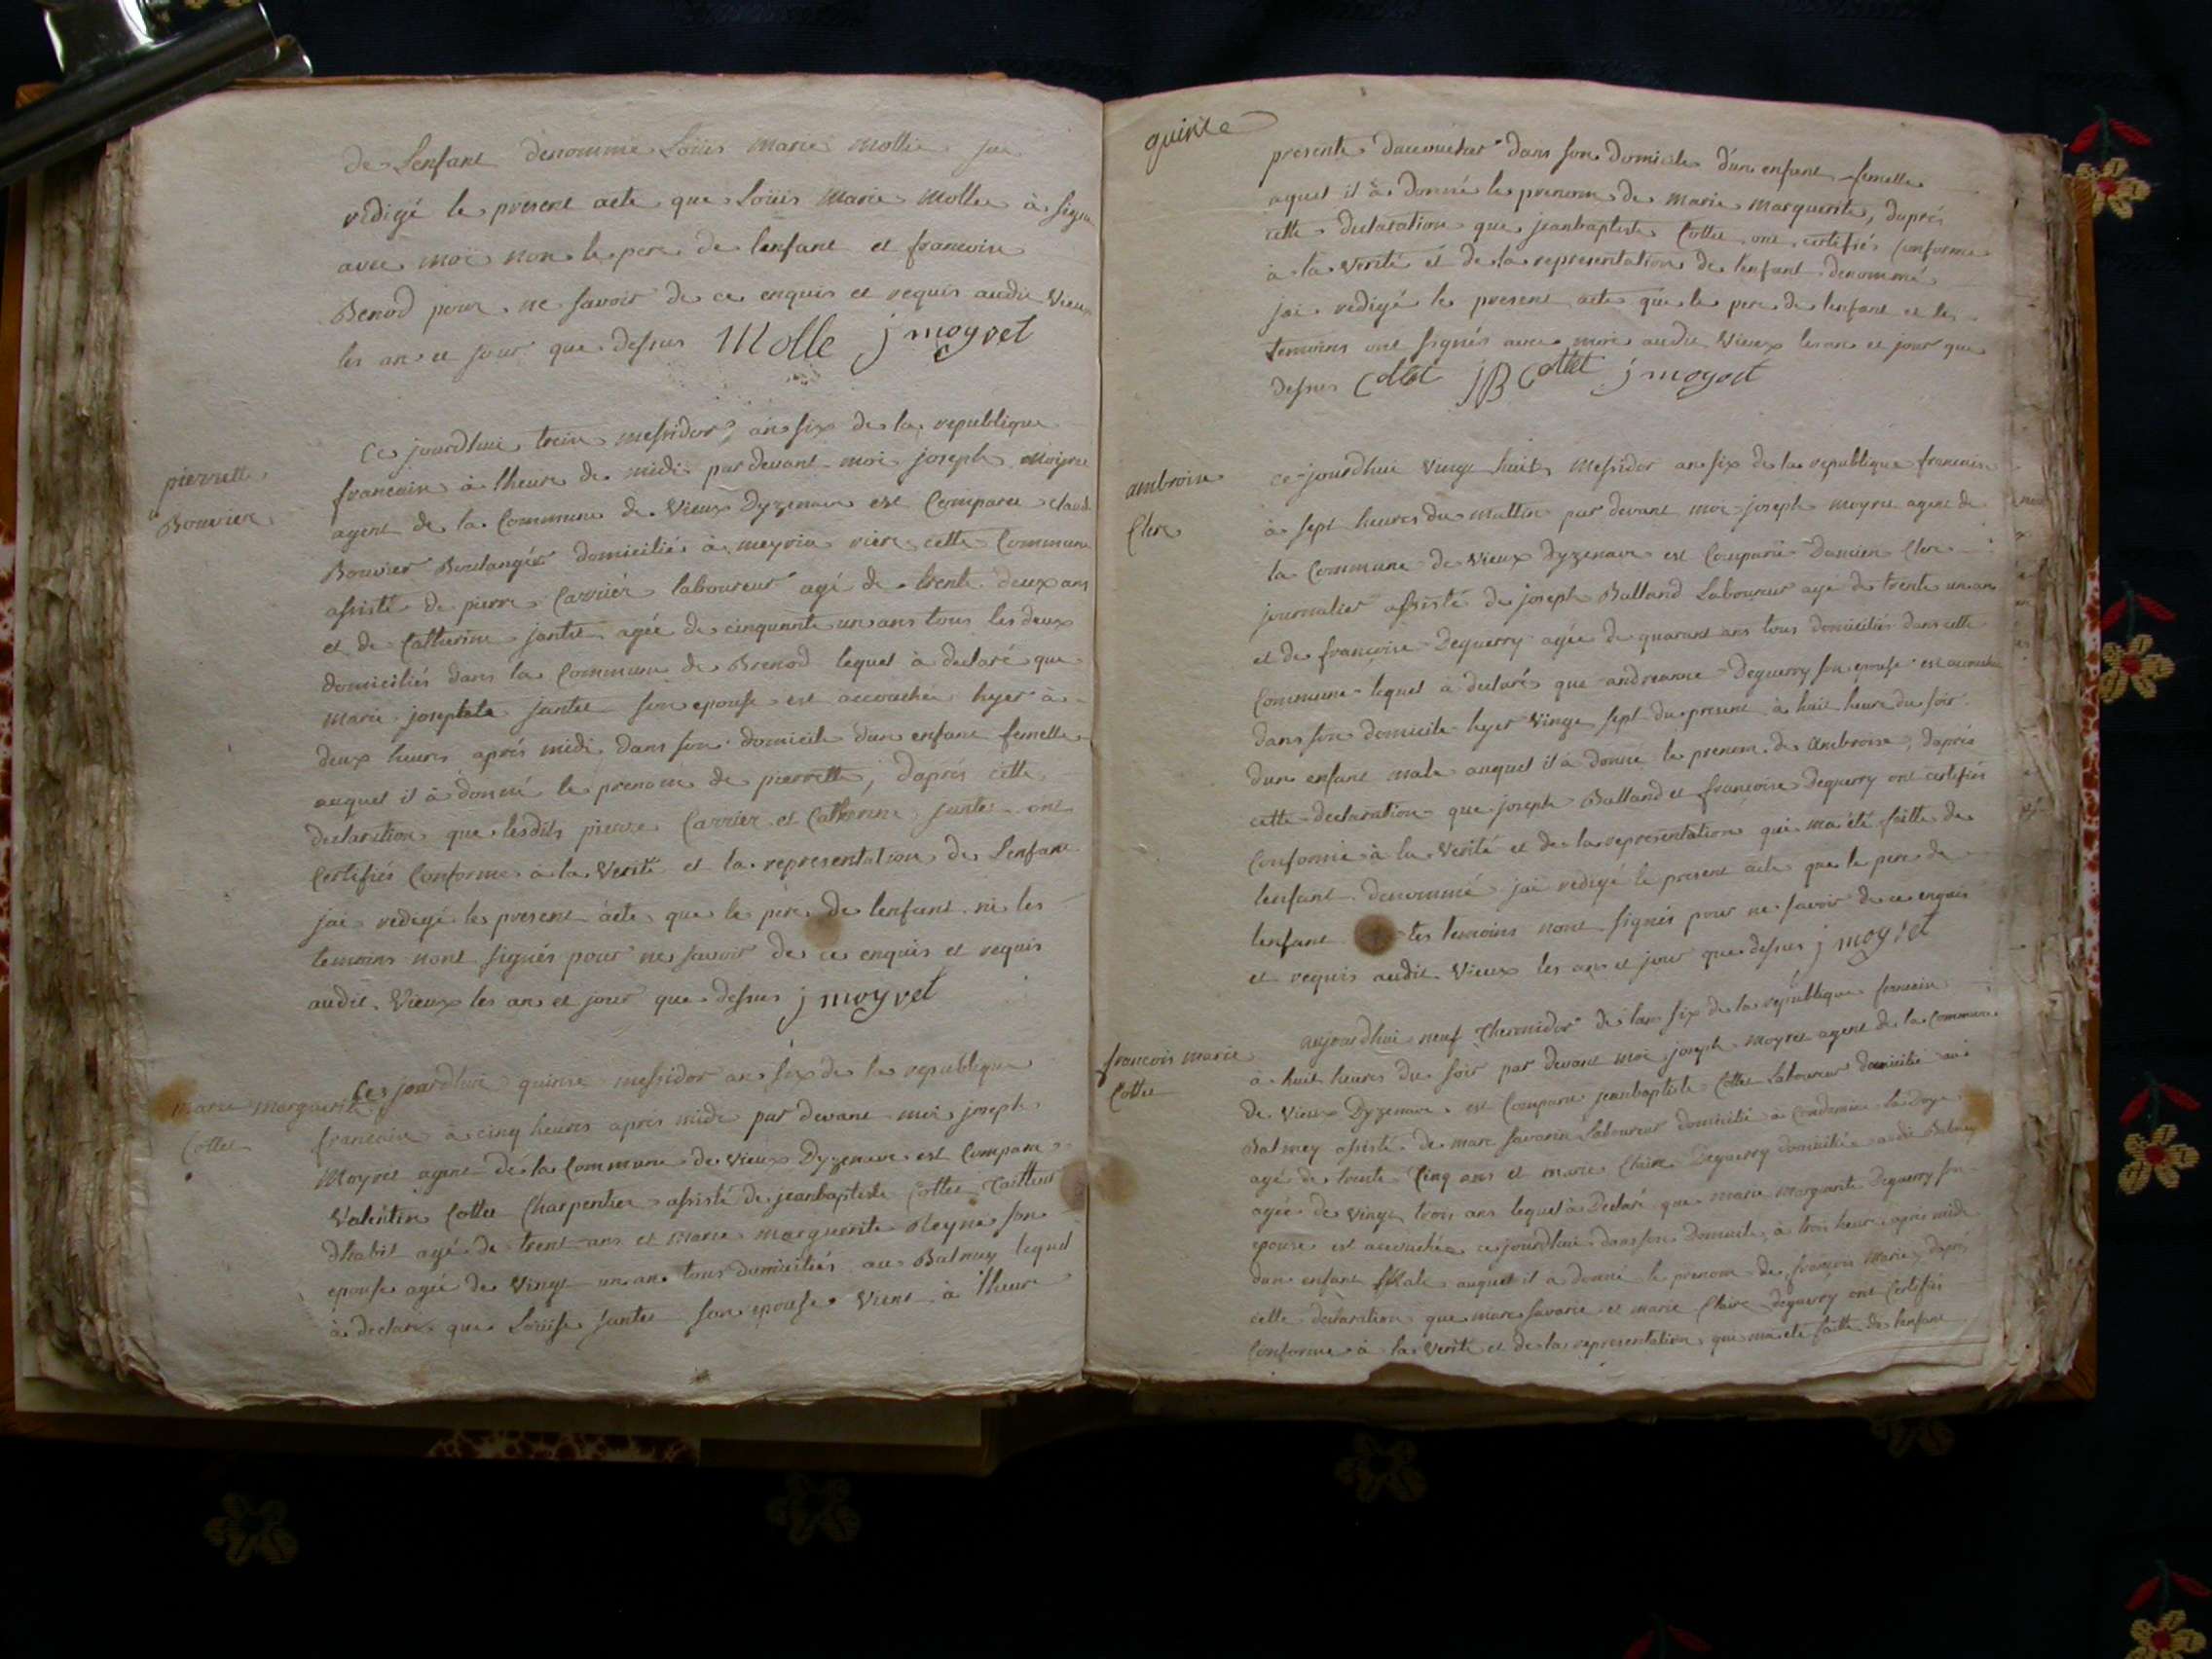 de Lenfant denommé Loüis Marie Mollie jai
redigé le present acte que Loüis Marie Mollie à signé
avec moi non le pere de lenfant et francoise
Benod pour ne savoir de ce enquis et requis audit Vieux
les an et jour que dessus Molle j moyret
pierrette
Bouvier
Ce jourdhui treize messidor an six de la republique
francaise à lheure de midi par devant moi joseph Moyret
agent de la Commune de Vieux Dyzenave est Comparu claude
Bouvier Boulangér domicilié à meyria riere cette Commune
assisté de pierre Carriér laboureur agé de trente deux ans
et de Catherine jantet agée de cinquante un ans tous les deux
domiciliés dans la Commune de Brenod lequel à declaré que
marie josephte jantet son epouse est accouchée hyer à
deux heures aprés midi dans son domicile dun enfant femelle
auquel il à donné le prenom de pierrette, daprés cette
declaration que lesdits pierre Carrier et Catherine jantet ont
Certifiés Conforme à la Verité et la representation de Lenfant
jai redigé le present acte que le pere de lenfant ni les
temoins nont signés pour ne savoir de ce enquis et requis
audit Vieux les an et jour que dessus j moyret
marie marguerite
Collet
Ce jourdhui quinze messidor an six de la republique
francaise à cinq heures aprés midi par devant moi joseph
Moyret agent de la Commune de Vieux Dyzenave est Comparu
Valentin Collet Charpentier assisté de jeanbaptiste Collet Tailleur
dhabit agé de trent ans et Marie Marguerite Reyne son
epouse agée de Vingt un an tous domiciliés au Balmey lequel
à declaré que Loüise jantet son epouse Vient à lheure
quinze
presente daccoucher dans son domicile dun enfant femelle
aquel il à donné le prenom de marie Marguerite, daprés
cette declaration que jeanbaptiste Collet ont certifiés Conforme
à la Verité et de la representation de lenfant denommé
jai redigé le present acte que le pere de lenfant et les
temoins ont signés avec moi audit Vieux les an et jour que
dessus Collet JB Collet j moyret
ambroise
Clerc
ce jourdhui Vingt huit Messidor an six de la republique francaise
à sept heures du mattin par devant moi joseph moyret agent de
la Commune de Vieux Dyzenave est Comparu Damien Clerc
journalier assisté de joseph Balland Laboureur agé de trente un an
et de françoise Deguerry agée de quarant ans tous domiciliés dans cette
Commune lequel à declaré que andreanne Deguerry son epouse est accouchée
dans son domicile hyer Vingt sept du present à huit heure du soir
dun enfant male auquel il à donné le prenom de Ambroise, daprés
cette declaration que joseph Balland et françoise Deguerry ont certifiés
Conforme à la Verité et de la representation qui ma été faitte de
lenfant denommé jai redigé le present acte que le pere de
lenfant les temoins nont signés pour ne savoir de ce enquis
et requis audit Vieux les an et jour que dessus j moyret
francois marie
Collet
aujourdhui neuf Thermidor de lan six de la republique francaise
à huit heures du soir par devant moi joseph Moyret agent de la Commune
de Vieux Dyzenave est Comparu jeanbaptiste Collet Laboureur domicilié au
Balmey assisté de marc Savarin Laboureur domicilié à Condamine la Doye
agé de trente Cinq ans et marie Claire Deguerry domiciliée audit Balmey
agée de Vingt trois ans lequel à Declaré que marie Marguerite Deguerry son
epouse est accouchée cejourdhui dans son Domicile à trois heur aprés midi
dun enfant Male auquel il a donné le prenom de francois Marie, daprés
cette declaration que marc Savarin et marie Claire Deguerry ont Certifiés
Conforme à la Verité et de la representation qui ma été faitte de lenfant